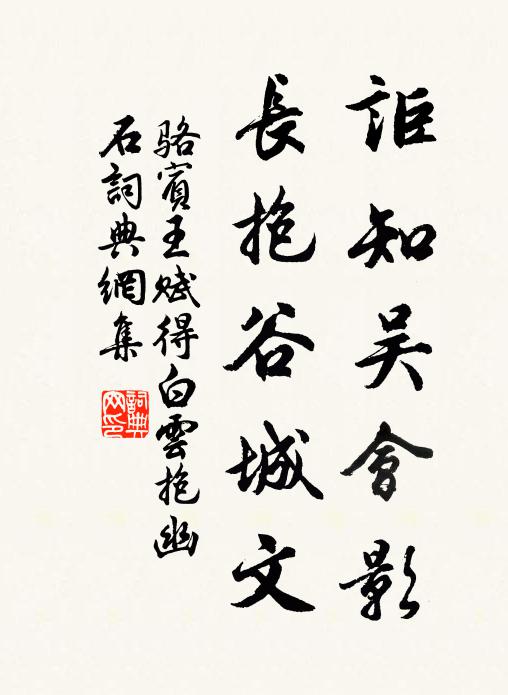 詎知吴會影
長抱谷城文
駱賓王賦得白雲抱幽
石詞典網集
詞典
网印